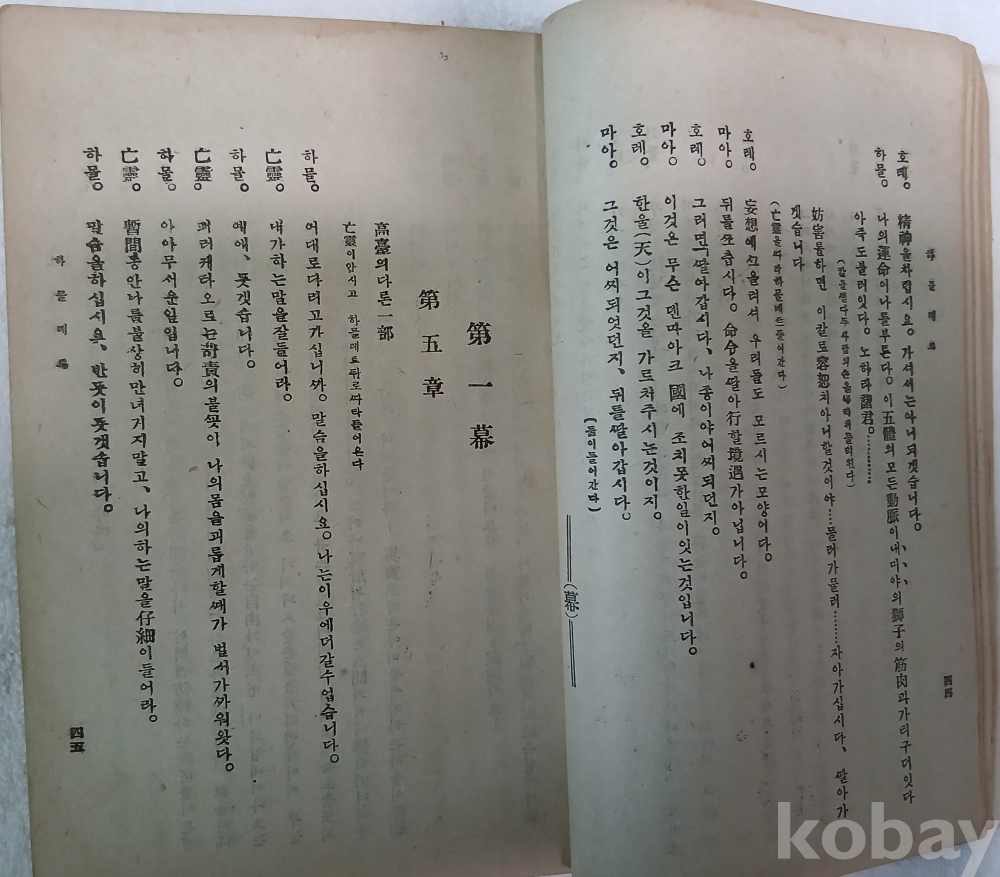 하믈레트
四四
호레。 精神을차립시요。 가셔셔는아니되겟습니다。
하믈。 나의運命이나를부른다。 이五體의모든動脈이내미야의獅子의筋肉과가티구더잇다
아즉도불러잇다。 노하라 諸君。…………
(칼을빼다두사람의손을뿌리쳐물리친다)
妨害를하면 이칼로容恕치아니할것이야……물러가물러………자아가십시다、 딸아가
겟습니다
(亡靈을따라하믈레트들어간다)
호레。 妄想에끄을려셔 우리들도 모르시는모양이다。
마아。 뒤를쪼츱시다。 命令을딸아行할境遇가아닙니다。
호레。 그러면딸아갑시다、 나종이야어찌되던지。
마아。 이것은 무슨 덴마아크 國에 조치못한일이잇는것입니다。
호레。 한울(天)이그것을 가르쳐주시는것이지。
마아。 그것은 어찌되엇던지、 뒤를딸아갑시다。
(둘이들어간다)
(幕)
第一幕
第五章
高臺의다른一部
亡靈이안시고 하믈레트뒤로따라들어온다
하믈。 어대로다리고가십니까。 말슴을하십시요。 나는이우에더갈수업습니다。
亡靈。 내가하는말을잘들어라。
하믈。 예애、 듯겟습니다。
亡靈。 퍼러케타오르는苛責의불꼿이 나의몸을괴롭게할때가 벌서가까워왓다。
하믈。 아아무서운일입니다。
亡靈。 暫間동안나를불상히만녀거지말고、 나의하는말을仔細이들어라。
하믈。 말슴을하십시요、 반듯이듯겟습니다。
하믈레트
四五
kobay